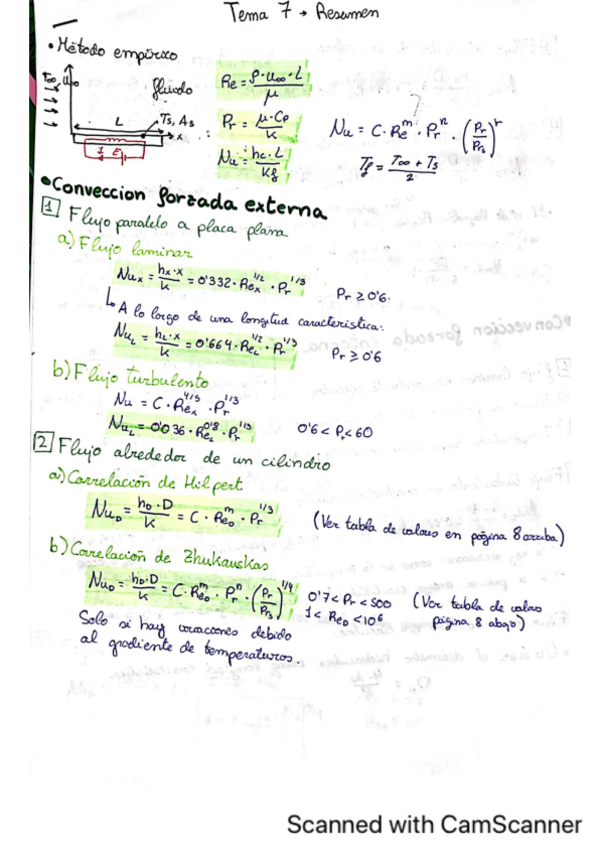 Tema 7 → Resumen
• Método empírico
T∞ U∞ fluido
L Ts, As
x
I E
Re = ρ·u∞·L / μ
Pr = μ·Cp / K
Nu = hc·L / Kf
Nu = C·Re^m·Pr^n·(Pr/Prs)^r
Tf = T∞ + Ts / 2
• Conveccion forzada externa
1 Flujo paralelo a placa plana
a) Flujo laminar
Nux = hx·x / K = 0'332·Rex^1/2·Pr^1/3 Pr ≥ 0'6.
↳ A lo largo de una longitud característica:
NuL = hL·x / K = 0'664·ReL^1/2·Pr^1/3 Pr ≥ 0'6
b) Flujo turbulento
Nu = C·Rex^4/5·Pr^1/3
NuL = 0'036·ReL^0'8·Pr^1/3 0'6 < Pr < 60
2 Flujo alrededor de un cilindro
a) Correlación de Hilpert
NuD = hD·D / K = C·ReD^m·Pr^1/3 (Ver tabla de valores en página 8 arriba)
b) Correlación de Zhukauskas
NuD = hD·D / K = C·ReD^m·Pr^n·(Pr/Prs)^1/4 0'7 < Pr < 500 (Ver tabla de valores
1 < ReD < 10^6 página 8 abajo)
Solo si hay correcciones debido
al gradiente de temperaturas.
Scanned with CamScanner